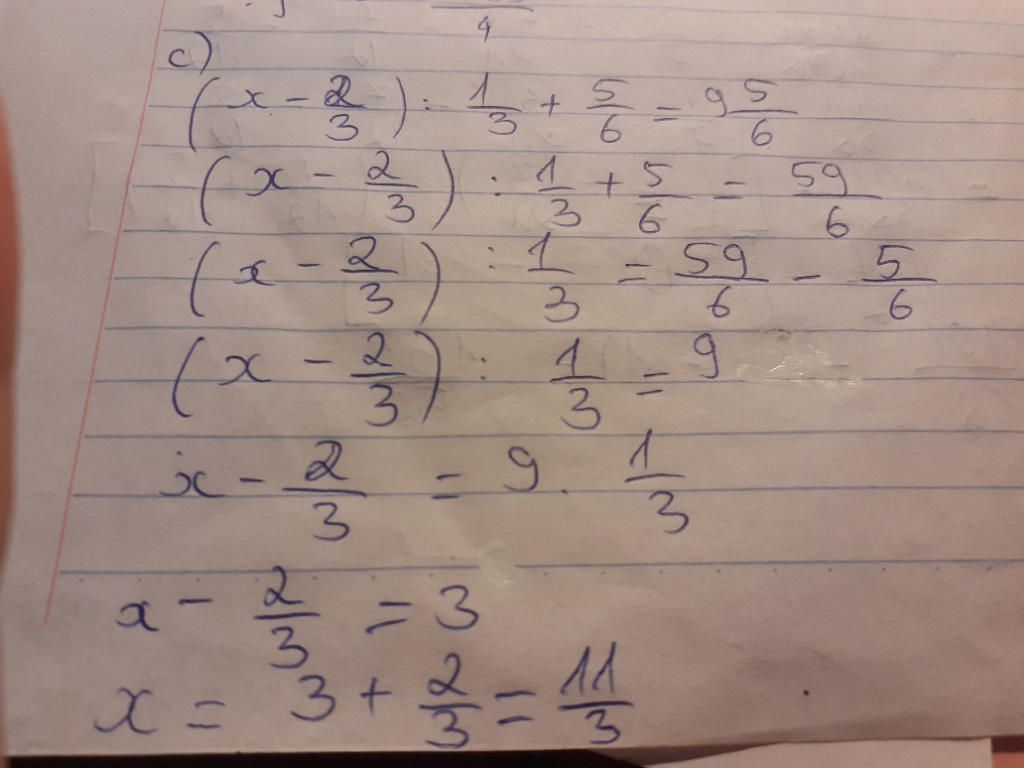 4
c)
(x - 2/3) : 1/3 + 5/6 = 9 5/6
(x - 2/3) : 1/3 + 5/6 = 59/6
(x - 2/3) : 1/3 = 59/6 - 5/6
(x - 2/3) : 1/3 = 9
x - 2/3 = 9 . 1/3
x - 2/3 = 3
x = 3 + 2/3 = 11/3